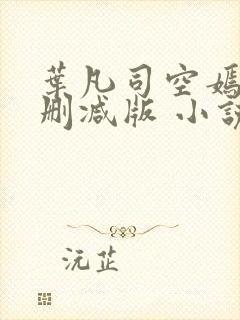 葉凡司空嫣
刪減版 小說
沅芷